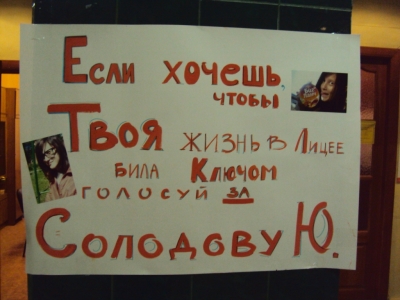 Если хочешь
чтобы
Твоя жизнь в Лицее
била Ключом
голосуй за
Солодову Ю.